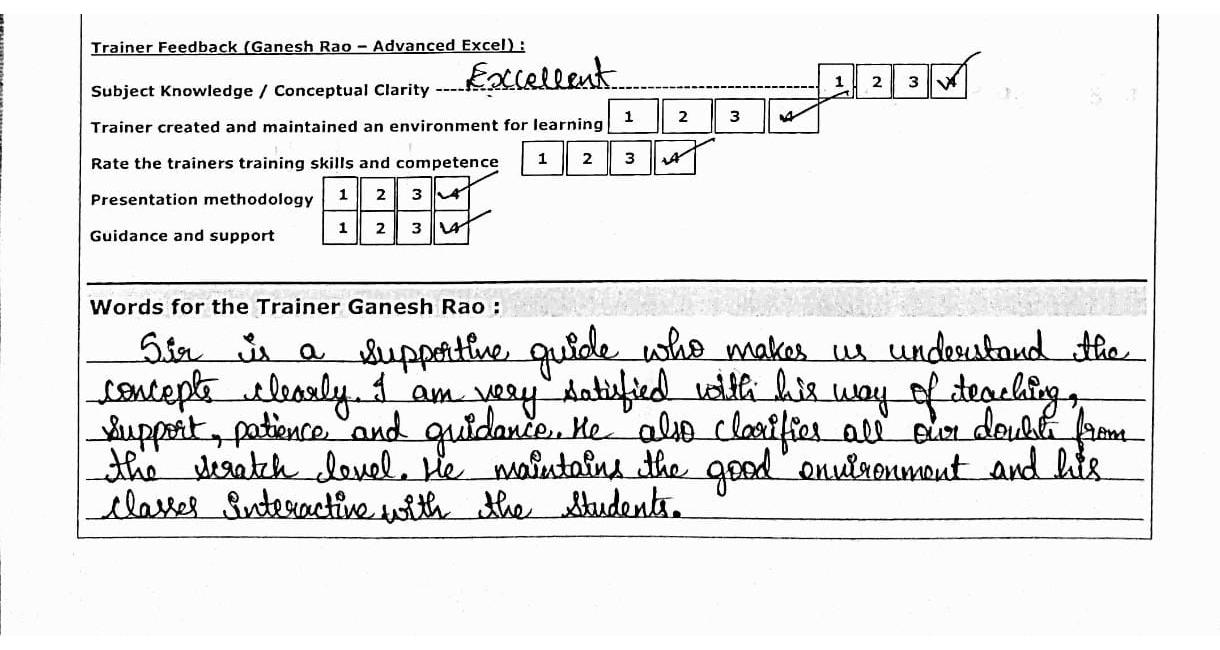 Trainer Feedback (Ganesh Rao – Advanced Excel) :
Subject Knowledge / Conceptual Clarity ---- Excellent ---- 1 2 3 4
Trainer created and maintained an environment for learning 1 2 3 4
Rate the trainers training skills and competence 1 2 3 4
Presentation methodology 1 2 3 4
Guidance and support 1 2 3 4
Words for the Trainer Ganesh Rao :
Sir is a supportive guide who makes us understand the
concepts clearly. I am very satisfied with his way of teaching,
support, patience and guidance. He also clarifies all our doubts from
the scratch level. He maintains the good environment and his
classes interactive with the students.